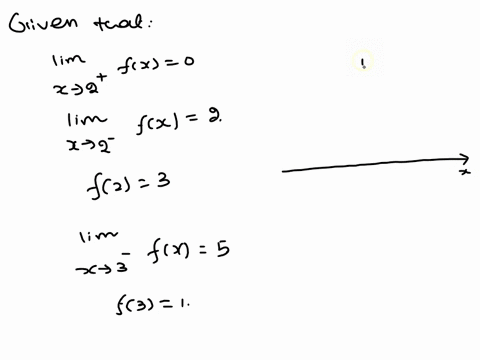 Given that:
lim x→2⁺ f(x) = 0
lim x→2⁻ f(x) = 2.
f(2) = 3
lim x→3⁻ f(x) = 5
f(3) = 1.
x